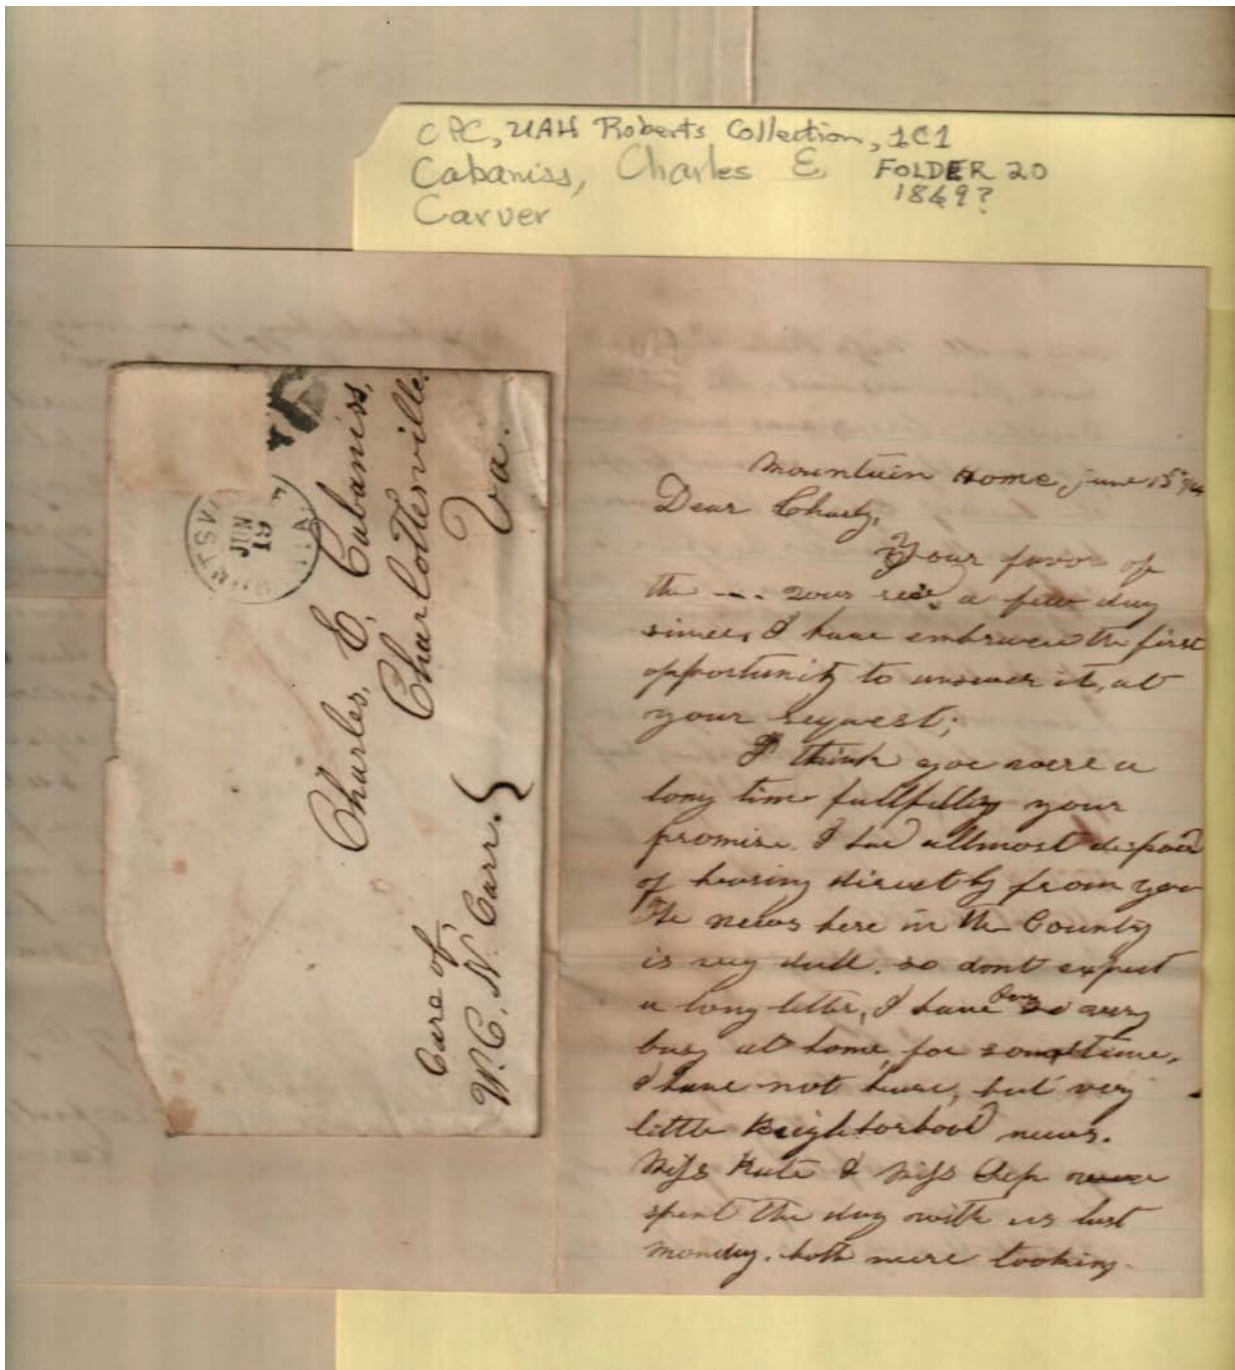 CPC, UAH Roberts Collection, 1C1
Cabaniss, Charles E. FOLDER 20
1869?
Carver
JUN
19
Charles, E, Cabaniss,
Charlottesville.
Va.
Care of,
W. C. N. Carr.
Mountain Home, june 15th
Dear Charly,
Your favor of
the --- was recd. a few day
since, I have embraced the first
opportunity to answer it, at
your request;
I think you were a
long time fullfilling your
promise. I had allmost dispard
of hearing directly from you
The news here in the County
is very dull. so dont expect
a long letter, I have been so very
busy at home, for sometime,
I have not hear, but very
little Neighborhood news.
Miss Kate & Miss
spent the day with us last
monday. both were looking